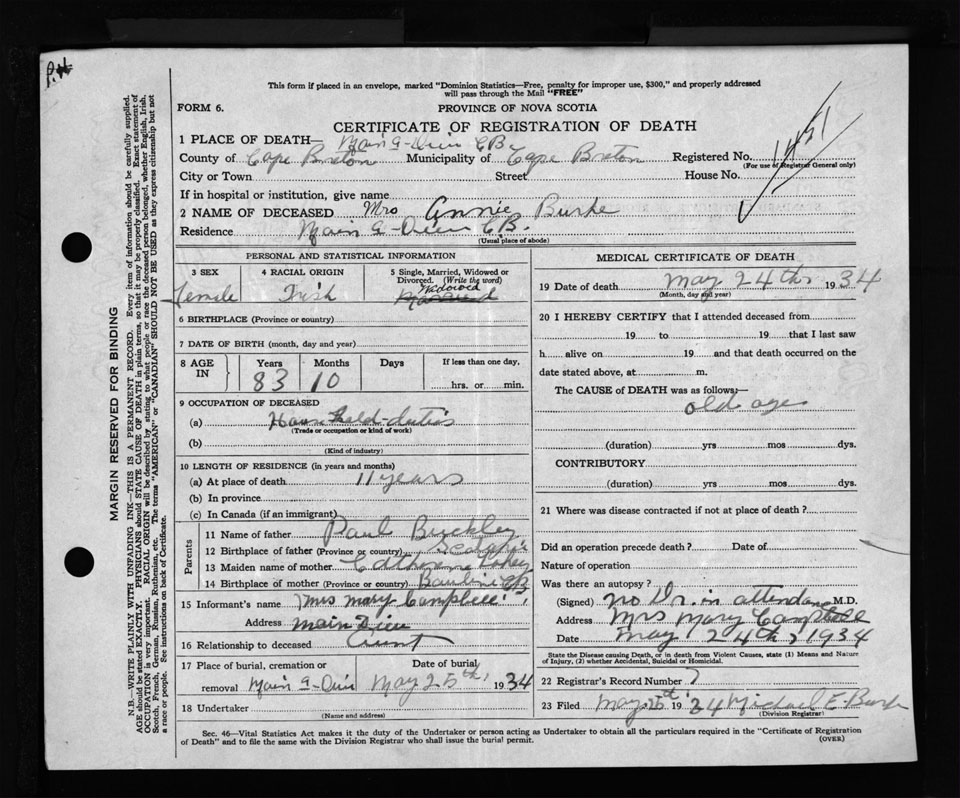 P.H.
This form if placed in an envelope, marked "Dominion Statistics—Free, penalty for improper use, $300," and properly addressed
will pass through the Mail "FREE"
FORM 6.
PROVINCE OF NOVA SCOTIA
CERTIFICATE OF REGISTRATION OF DEATH
1451
1 PLACE OF DEATH— Main-à-Dieu CB
County of Cape Breton Municipality of Cape Breton Registered No.
(For use of Registrar General only)
City or Town Street House No.
If in hospital or institution, give name
2 NAME OF DECEASED Mrs Annie Burke
Residence Main-à-Dieu CB.
(Usual place of abode)
PERSONAL AND STATISTICAL INFORMATION
3 SEX 4 RACIAL ORIGIN 5 Single, Married, Widowed or Divorced. (Write the word)
Female Irish Widowed
6 BIRTHPLACE (Province or country)
7 DATE OF BIRTH (month, day and year)
8 AGE IN Years Months Days If less than one day,
83 10 hrs. or min.
9 OCCUPATION OF DECEASED
(a) House hold-duties
(Trade or occupation or kind of work)
(b)
(Kind of industry)
10 LENGTH OF RESIDENCE (in years and months)
(a) At place of death 11 years
(b) In province
(c) In Canada (if an immigrant)
Parents
11 Name of father Paul Buckley
12 Birthplace of father (Province or country)
13 Maiden name of mother Catherine
14 Birthplace of mother (Province or country) CB
15 Informant's name Mrs Mary Campbell
Address Main Dieu
16 Relationship to deceased Aunt
17 Place of burial, cremation or Date of burial
removal Main-à-Dieu May 25th, 1934
18 Undertaker
(Name and address)
MEDICAL CERTIFICATE OF DEATH
19 Date of death May 24th, 1934
(Month, day and year)
20 I HEREBY CERTIFY that I attended deceased from
19 to 19 that I last saw
h alive on 19 and that death occurred on the
date stated above, at m.
The CAUSE of DEATH was as follows:—
old age
(duration) yrs mos dys.
CONTRIBUTORY
(duration) yrs mos dys.
21 Where was disease contracted if not at place of death?
Did an operation precede death? Date of
Nature of operation
Was there an autopsy?
(Signed) No Dr. in attendance M.D.
Address Mrs Mary Campbell
Date May 24th, 1934
State the Disease causing Death, or in death from Violent Causes, state (1) Means and Nature
of Injury, (2) whether Accidental, Suicidal or Homicidal.
22 Registrar's Record Number 7
23 Filed May 25th 1934 Michael E. Burke
(Division Registrar)
Sec. 46—Vital Statistics Act makes it the duty of the Undertaker or person acting as Undertaker to obtain all the particulars required in the "Certificate of Registration
of Death" and to file the same with the Division Registrar who shall issue the burial permit. (OVER)
MARGIN RESERVED FOR BINDING
N.B.—WRITE PLAINLY WITH UNFADING INK—THIS IS A PERMANENT RECORD. Every item of information should be carefully supplied.
AGE should be stated EXACTLY. PHYSICIANS should STATE CAUSE OF DEATH in plain terms, so that it may be properly classified. Exact statement of
OCCUPATION is very important. RACIAL ORIGIN will be described by stating to what people or race the deceased person belonged, whether English, Irish,
Scotch, French, German, Russian, Ruthenian, etc. The terms "AMERICAN" or "CANADIAN" SHOULD NOT BE USED as they express citizenship but not
a race or people. See instructions on back of Certificate.